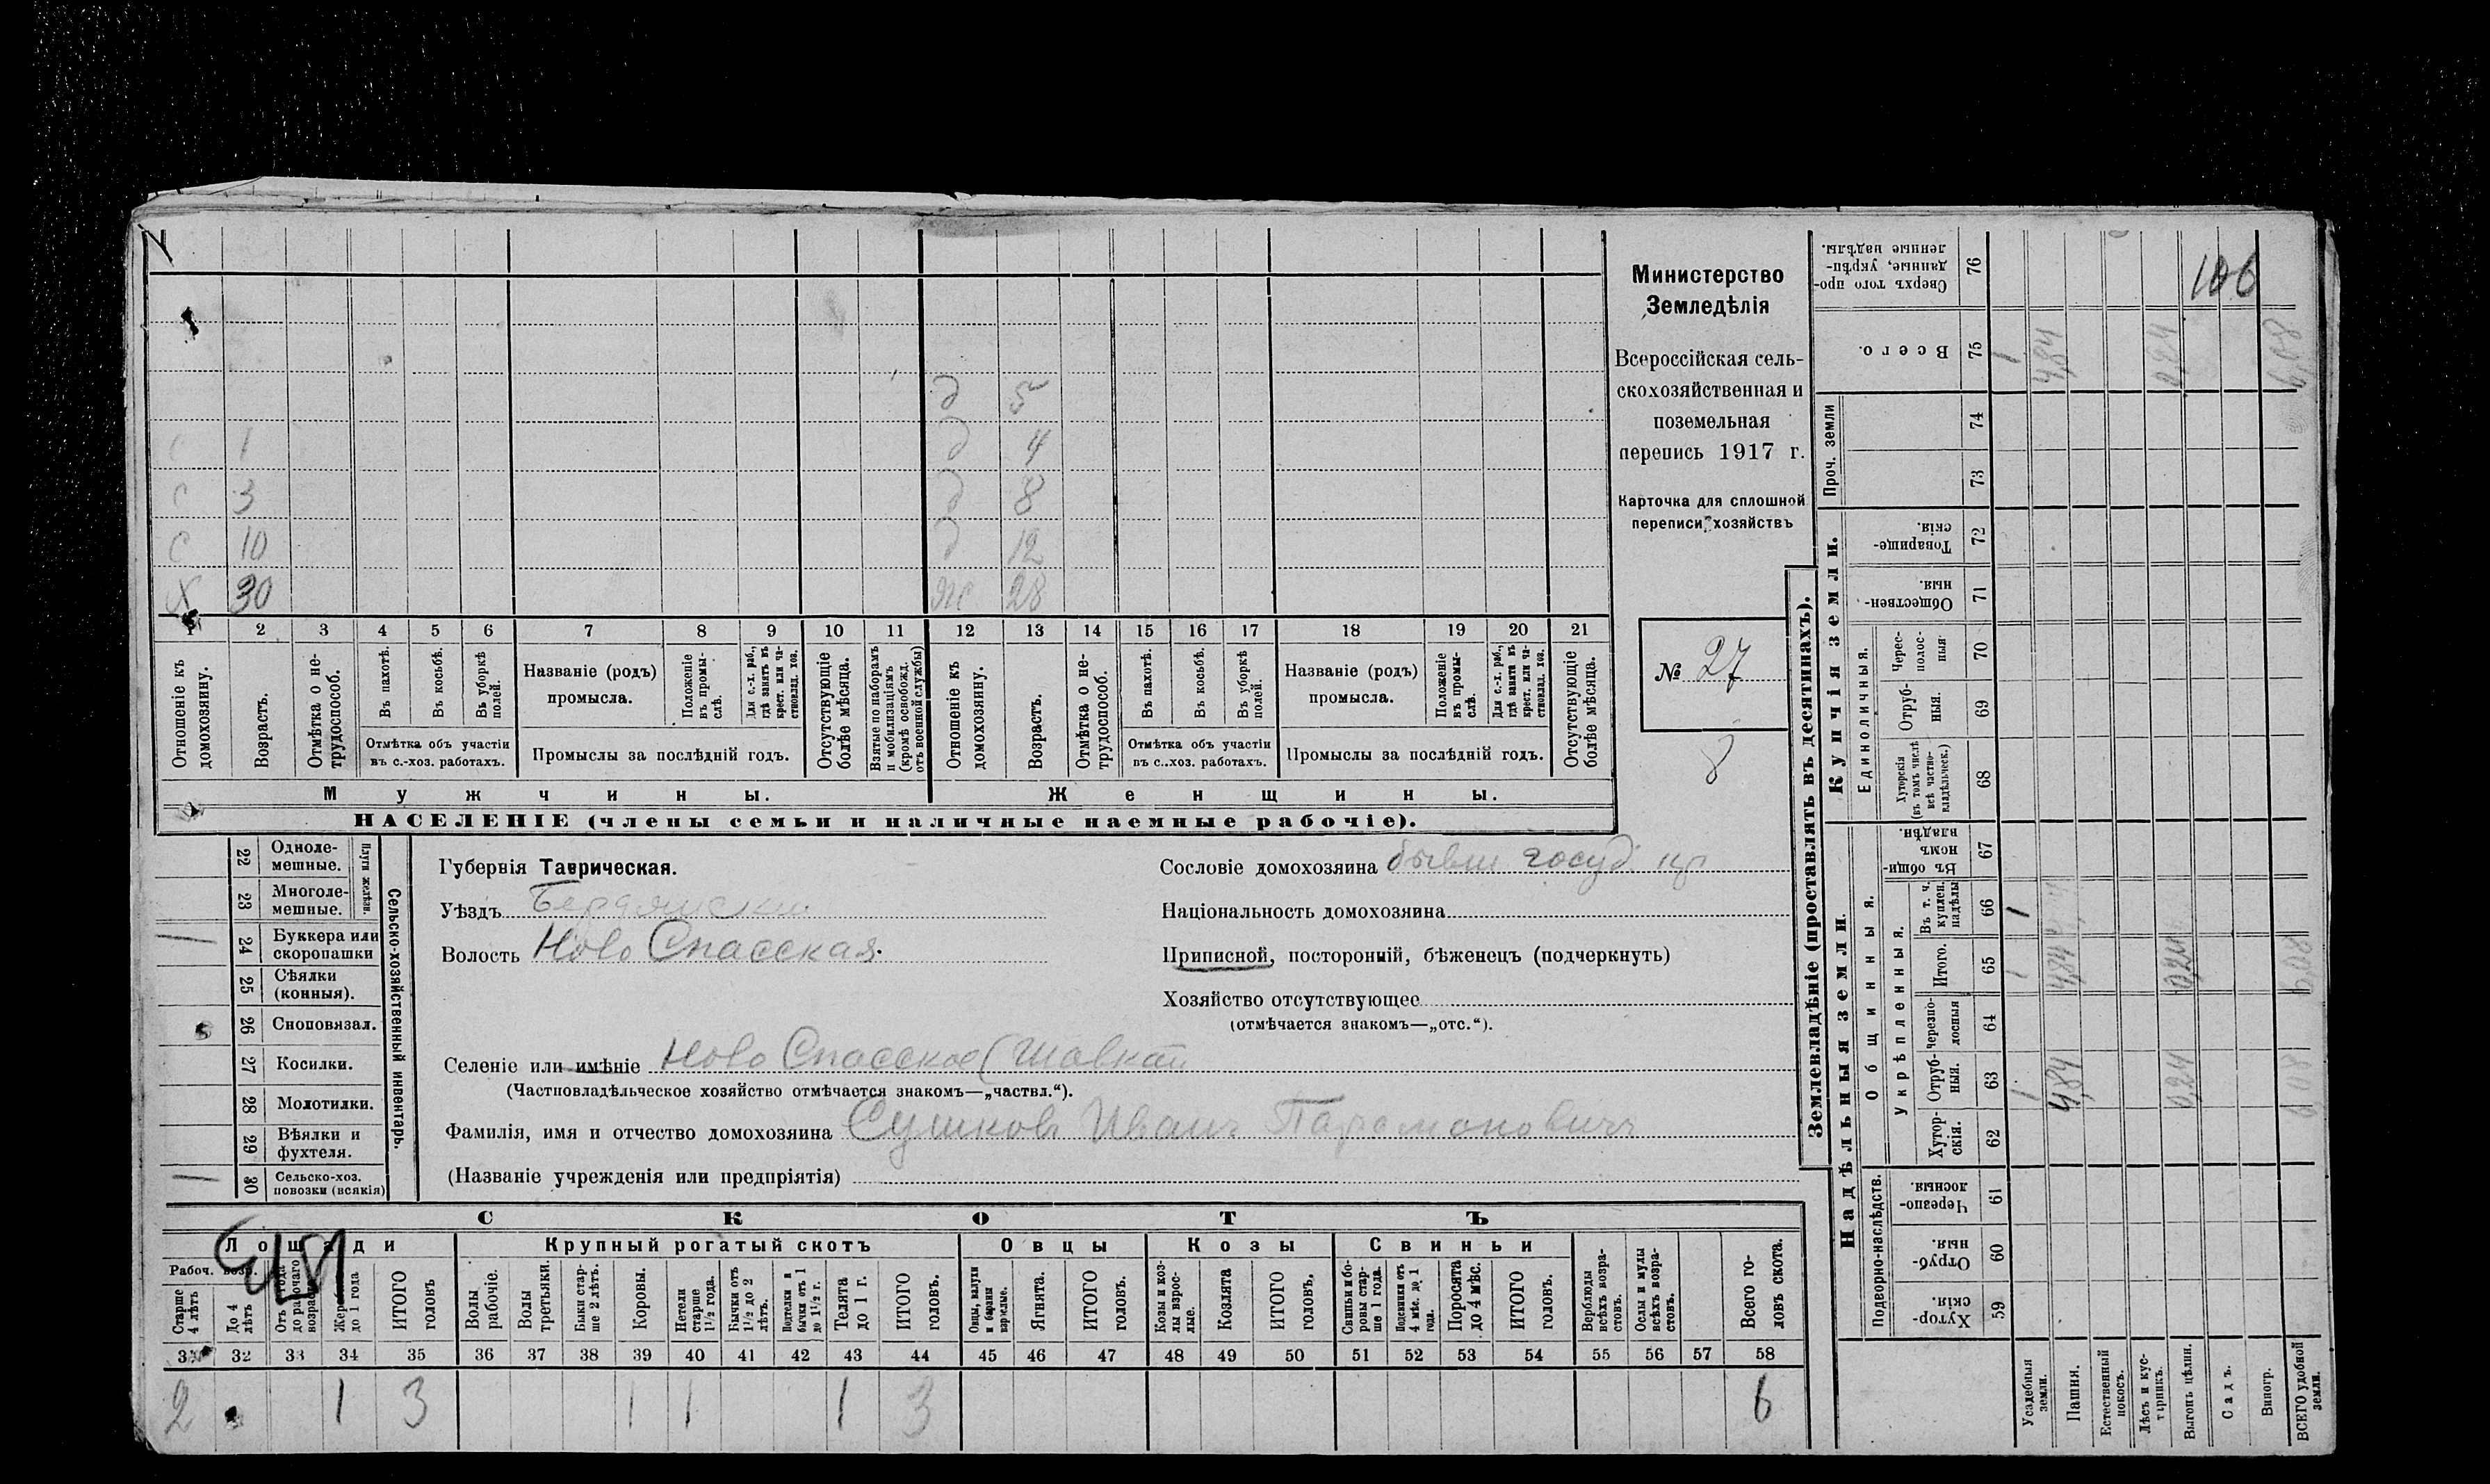 106
д 5
с 1 д 4
с 3 д 8
с 10 д 12
х 30 ж 28
1 2 3 4 5 6 7 8 9 10 11 12 13 14 15 16 17 18 19 20 21
Отношеніе къ домохозяину.
Возрастъ.
Отмѣтка о не-
трудоспособ.
Въ пахотѣ.
Въ косьбѣ.
Въ уборкѣ
полей.
Отмѣтка объ участіи
въ с.-хоз. работахъ.
Названіе (родъ)
промысла.
Положеніе
въ промы-
слѣ.
Для с.-х. раб.,
гдѣ занятъ въ
крест. или ча-
стновлад. хоз.
Промыслы за послѣдній годъ.
Отсутствующіе
болѣе мѣсяца.
Взятые по наборамъ
и мобилизаціямъ
(кромѣ освобожд.
отъ военной службы)
Отношеніе къ
домохозяину.
Возрастъ.
Отмѣтка о не-
трудоспособ.
Въ пахотѣ.
Въ косьбѣ.
Въ уборкѣ
полей.
Отмѣтка объ участіи
въ с.-хоз. работахъ.
Названіе (родъ)
промысла.
Положеніе
въ промы-
слѣ.
Для с.-х. раб.,
гдѣ занята въ
крест. или ча-
стновлад. хоз.
Промыслы за послѣдній годъ.
Отсутствующіе
болѣе мѣсяца.
Мужчины.
Женщины.
НАСЕЛЕНІЕ (члены семьи и наличные наемные рабочіе).
Министерство
Земледѣлія
Всероссійская сель-
скохозяйственная и
поземельная
перепись 1917 г.
Карточка для сплошной
переписи хозяйствъ
№ 27
8
Сельско-хозяйственный инвентарь.
Плуги желѣзн.
22 Одноле-
мешные.
23 Многоле-
мешные.
1 24 Буккера или
скоропашки
25 Сѣялки
(конныя).
26 Сноповязал.
27 Косилки.
28 Молотилки.
29 Вѣялки и
фухтеля.
1 30 Сельско-хоз.
повозки (всякія)
Губернія Таврическая.
Уѣздъ Бердянскій
Волость Ново Спасская.
Сословіе домохозяина бывш госуд. кр
Національность домохозяина
Приписной, посторонній, бѣженецъ (подчеркнуть)
Хозяйство отсутствующее
(отмѣчается знакомъ—„отс.“).
Селеніе или имѣніе Ново Спасское (
(Частновладѣльческое хозяйство отмѣчается знакомъ—„частвл.“).
Фамилія, имя и отчество домохозяина Сушковъ Иванъ Парамоновичъ
(Названіе учрежденія или предпріятія)
СКОТЪ
Лошади
Крупный рогатый скотъ
Овцы
Козы
Свиньи
Рабоч. возр.
Старше
4 лѣтъ
До 4
лѣтъ
до рабочаго
до 1 года
ИТОГО
головъ
Волы
рабочіе.
Волы
третьяки.
Быки стар-
ше 2 лѣтъ.
Коровы.
Нетели
старше
1½ года.
Бычки отъ
1½ до 2
лѣтъ.
Подтелки и
бычки отъ 1
до 1½ г.
Телята
до 1 г.
ИТОГО
головъ.
Овцы, валухи
и бараны
взрослые.
Ягнята.
ИТОГО
головъ.
Козы и коз-
лы взрос-
лые.
Козлята
ИТОГО
головъ.
Свиньи и бо-
ровы стар-
ше 1 года.
Подсвинки отъ
4 мѣс. до 1
года.
Поросята
до 4 мѣс.
ИТОГО
головъ.
Верблюды
всѣхъ возра-
стовъ.
Ослы и мулы
всѣхъ возра-
стовъ.
Всего го-
ловъ скота.
32 33 34 35 36 37 38 39 40 41 42 43 44 45 46 47 48 49 50 51 52 53 54 55 56 57 58
2 1 3 1 1 1 3 6
Землевладѣніе (проставлять въ десятинахъ).
Надѣльныя земли
Купчія земли.
Подворно-наслѣдств.
Общинныя.
Укрѣпленныя.
Единоличныя.
Проч. земли
Хутор-
скія. 59
Отруб-
ныя. 60
Черезпо-
лосныя. 61
Хутор-
скія. 62
Отруб-
ныя. 63
Черезпо-
лосныя 64
Итого. 65
Въ т. ч.
куплен.
надѣлы 66
Въ общин-
номъ
владѣн. 67
Хуторскія
(въ томъ числѣ
всѣ частно-
владѣльческ.) 68
Отруб-
ныя. 69
Черес-
полос-
ныя 70
Обществен-
ныя. 71
Товарище-
скія. 72
73
74
Всего. 75
Сверхъ того про-
данные, укрѣп-
ленные надѣлы. 76
Усадебныя
земли.
Пашня.
Естественный
покосъ.
Лѣсъ и кус-
тарникъ.
Выгонъ цѣлин.
Садъ.
Виногр.
ВСЕГО удобной
земли.
1 4,84 0,24 6,08
1 4,84 0,24 6,08
1
1 4,84 0,24 6,08